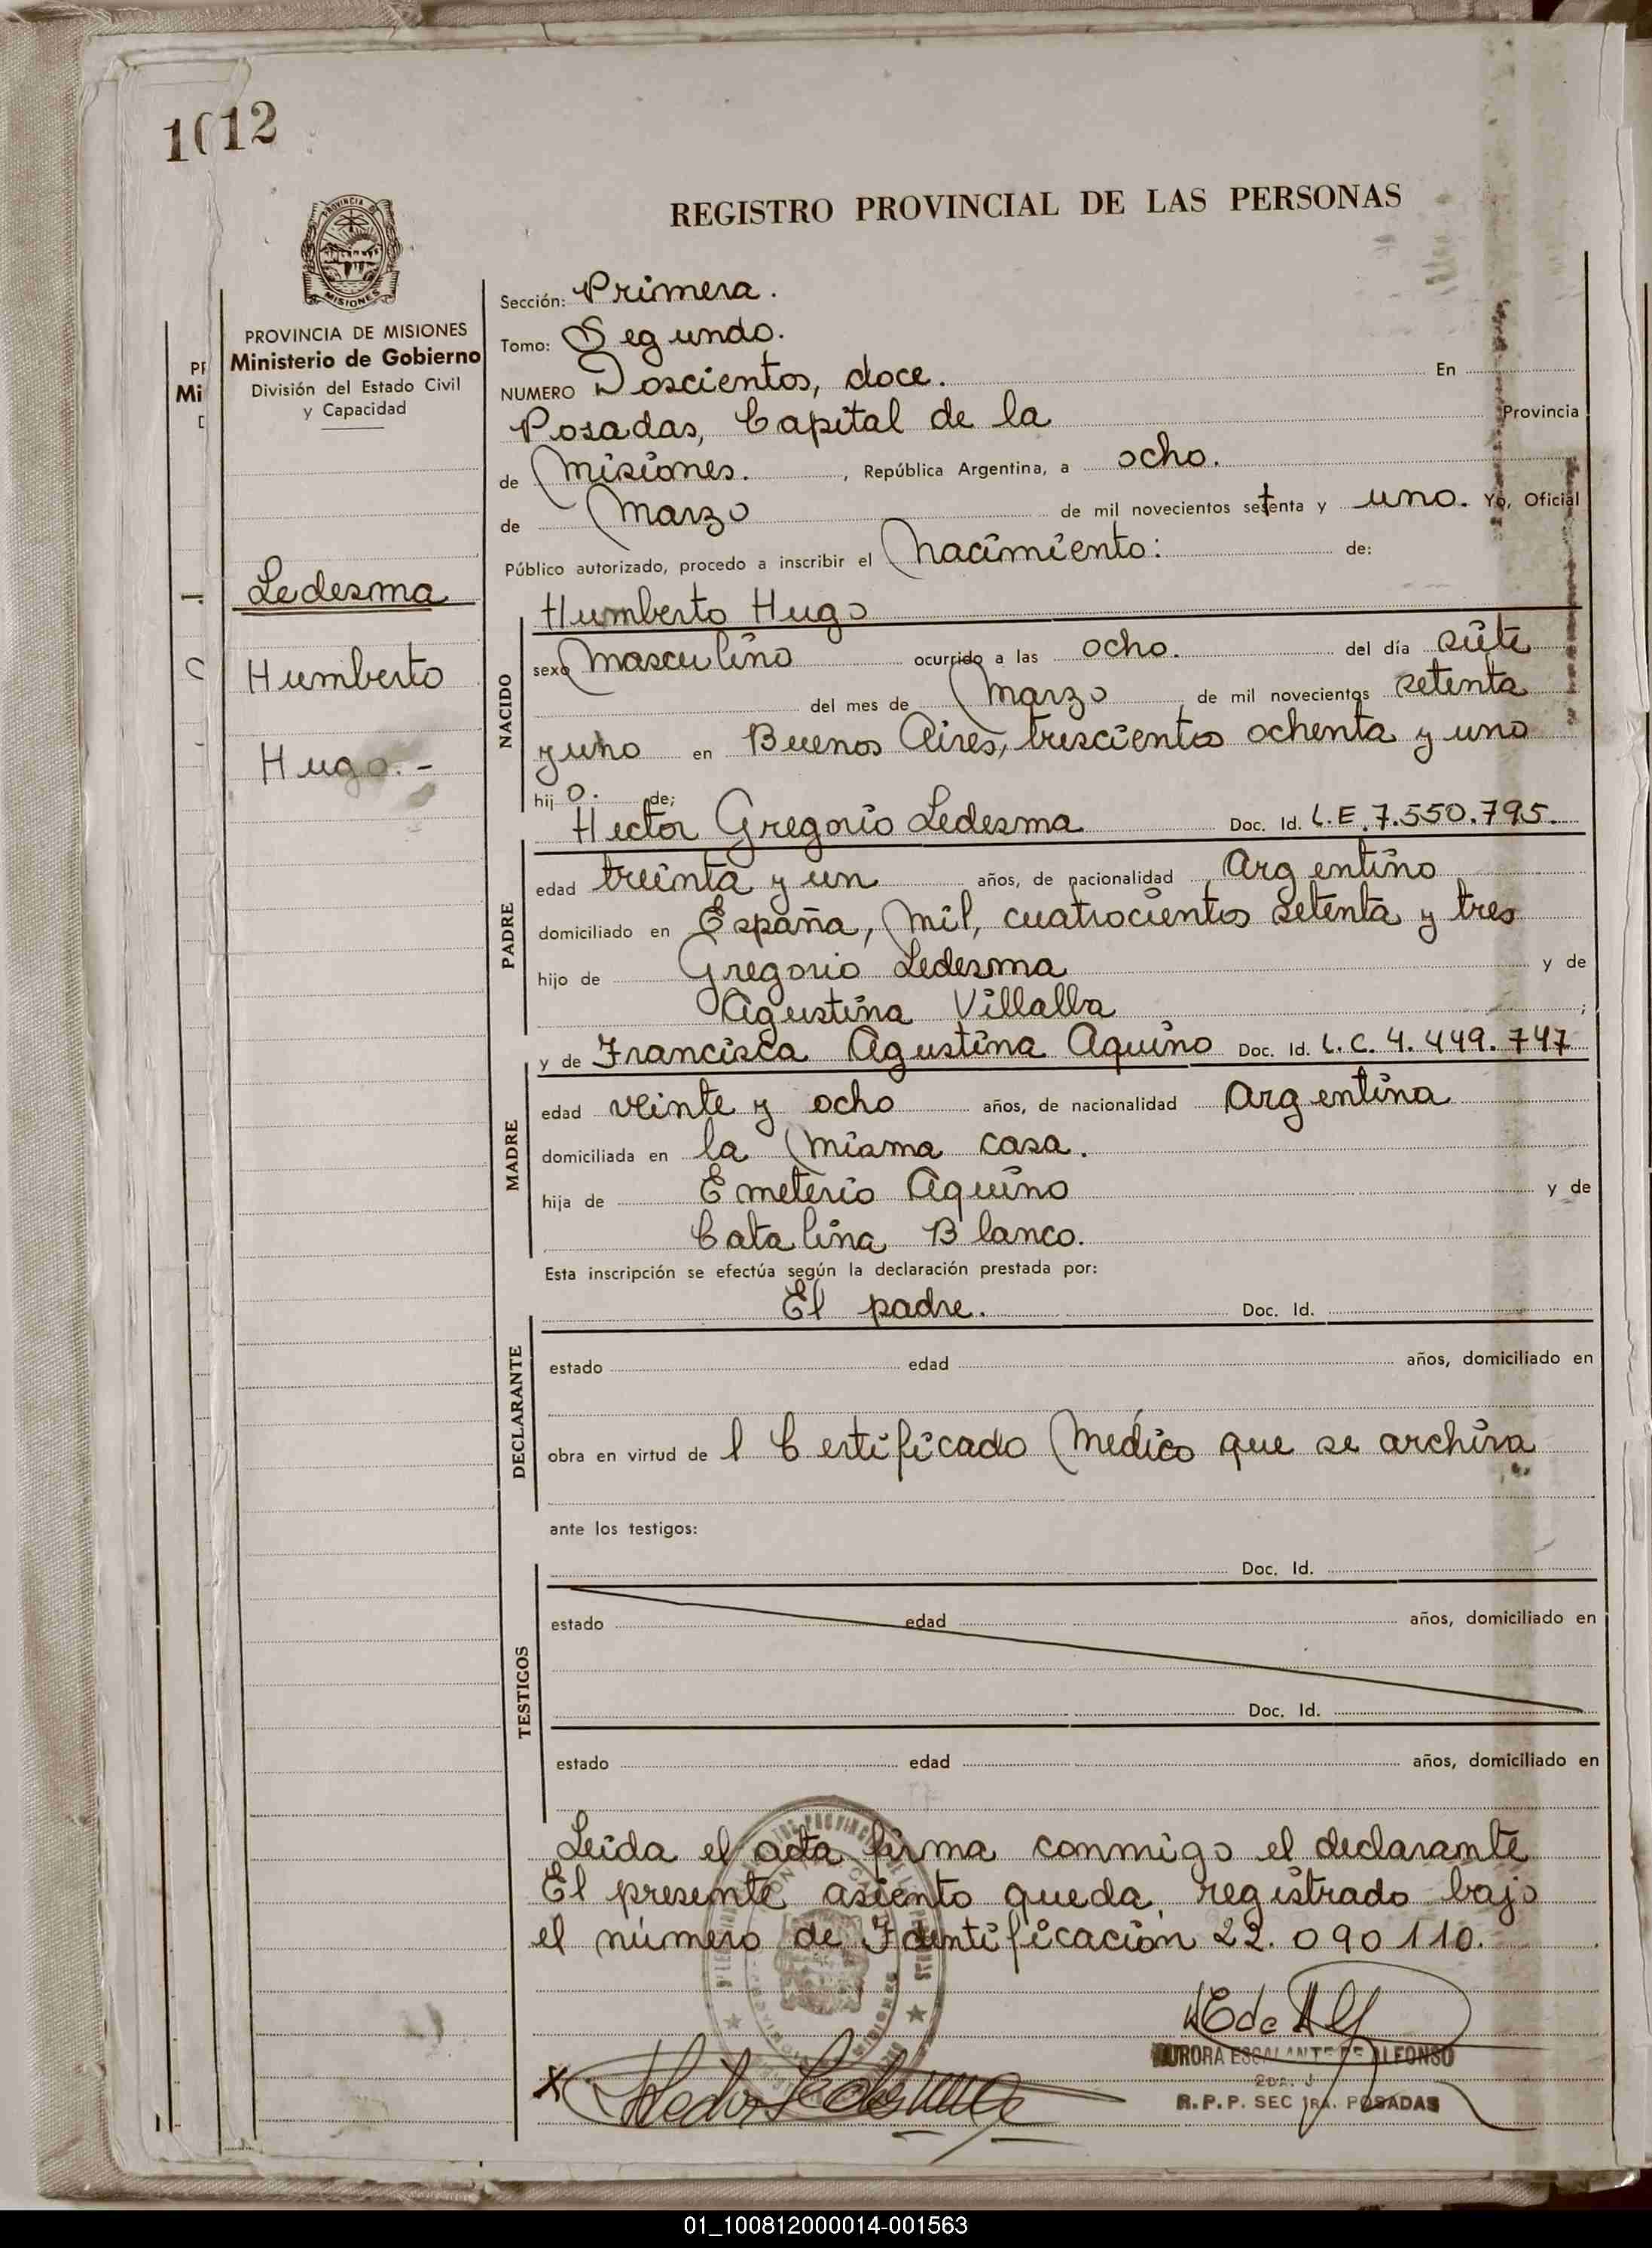 1012
REGISTRO PROVINCIAL DE LAS PERSONAS
PROVINCIA DE MISIONES
Ministerio de Gobierno
División del Estado Civil
y Capacidad
Ledesma
Humberto
Hugo.-
Sección: Primera.
Tomo: Segundo.
NUMERO Doscientos, doce. En
Posadas, Capital de la Provincia
de Misiones. , República Argentina, a ocho.
de Marzo de mil novecientos setenta y uno. Yo, Oficial
Público autorizado, procedo a inscribir el Nacimiento: de:
Humberto Hugo
NACIDO
sexo Masculino ocurrido a las ocho. del día siete
del mes de Marzo de mil novecientos setenta
y uno en Buenos Aires, trescientos ochenta y uno
hijo. de;
Hector Gregorio Ledesma Doc. Id. L.E. 7.550.795.
PADRE
edad treinta y un años, de nacionalidad Argentino
domiciliado en España, Mil, cuatrocientos setenta y tres
hijo de Gregorio Ledesma y de
Agustina Villalba ;
y de Francisca Agustina Aquino Doc. Id. L.C. 4.449.747
MADRE
edad veinte y ocho años, de nacionalidad Argentina
domiciliada en la Misma casa.
hija de Emeterio Aquino y de
Catalina Blanco.
Esta inscripción se efectúa según la declaración prestada por:
El padre. Doc. Id.
DECLARANTE
estado edad años, domiciliado en
obra en virtud de l Certificado Médico que se archiva
ante los testigos:
Doc. Id.
TESTIGOS
estado edad años, domiciliado en
Doc. Id.
estado edad años, domiciliado en
Leída el acta firma conmigo el declarante
El presente asiento queda, registrado bajo
el número de Identificación 22.090110.
Hector Ledesma
AURORA ESCALANTE DE ALFONSO
R.P.P. SEC 1RA. POSADAS
01_100812000014-001563